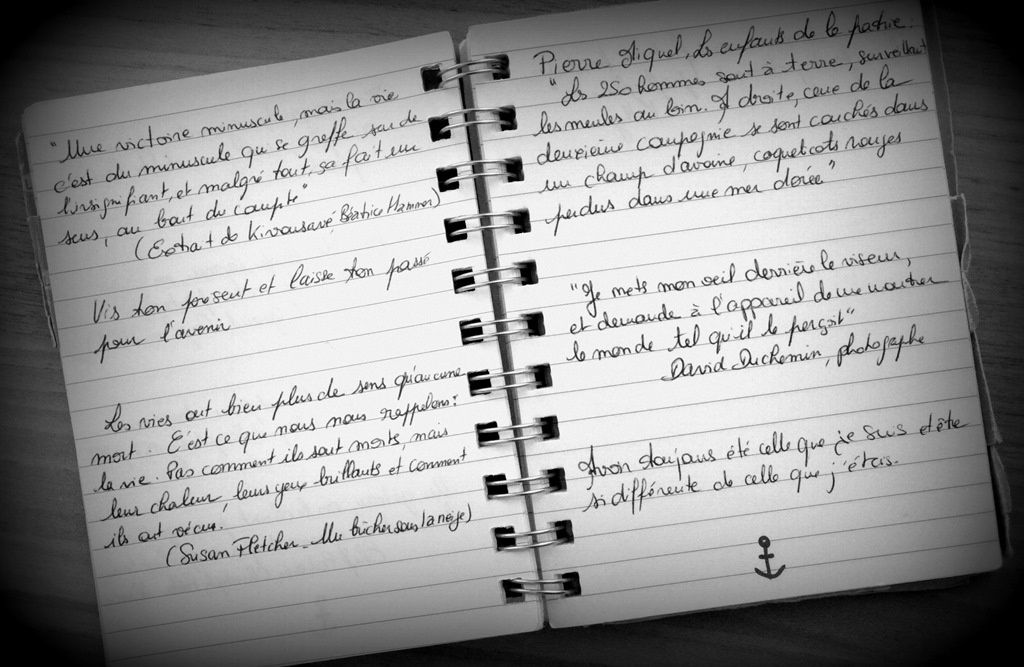 "Une victoire minuscule, mais la vie
c'est du minuscule qui se greffe sur de
l'insignifiant, et malgré tout, sa fait un
sens, au bout du compte"
(Extrait de Kivousavé, Béatrice Hammer)
Vis ton present et laisse ton passé
pour l'avenir
Les vies ont bien plus de sens qu'aucune
mort. C'est ce que nous nous rappelons :
la vie. Pas comment ils sont morts, mais
leur chaleur, leurs yeux brillants et comment
ils ont vécu.
(Susan Fletcher - Un bûcher sous la neige)
Pierre Miquel, Les enfants de la patrie :
"Les 250 hommes sont à terre, surveillant
les meules au loin. A droite, ceux de la
deuxième compagnie se sont couchés dans
un champ d'avoine, coquelicots rouges
perdus dans une mer dorée"
"Je mets mon oeil derrière le viseur,
et demande à l'appareil de me montrer
le monde tel qu'il le perçoit"
David Duchemin, photographe
Avoir toujours été celle que je suis et être
si différente de celle que j'étais.